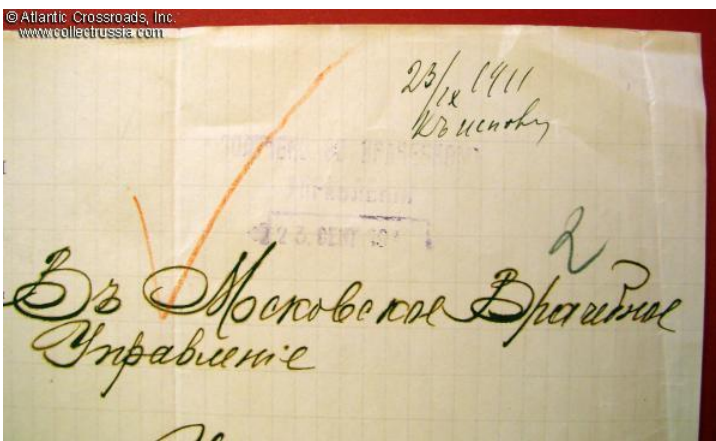 © Atlantic Crossroads, Inc.
www.collectrussia.com
23/IX 1911
Къ исполн
23. СЕНТ 191
2
Въ Московское Врачебное
Управленіе